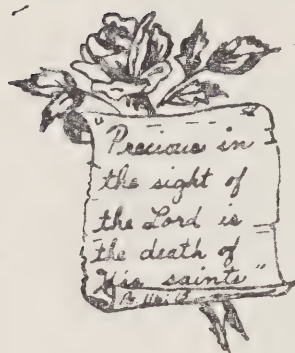 "Precious in
the sight of
the Lord is
the death of
His saints"